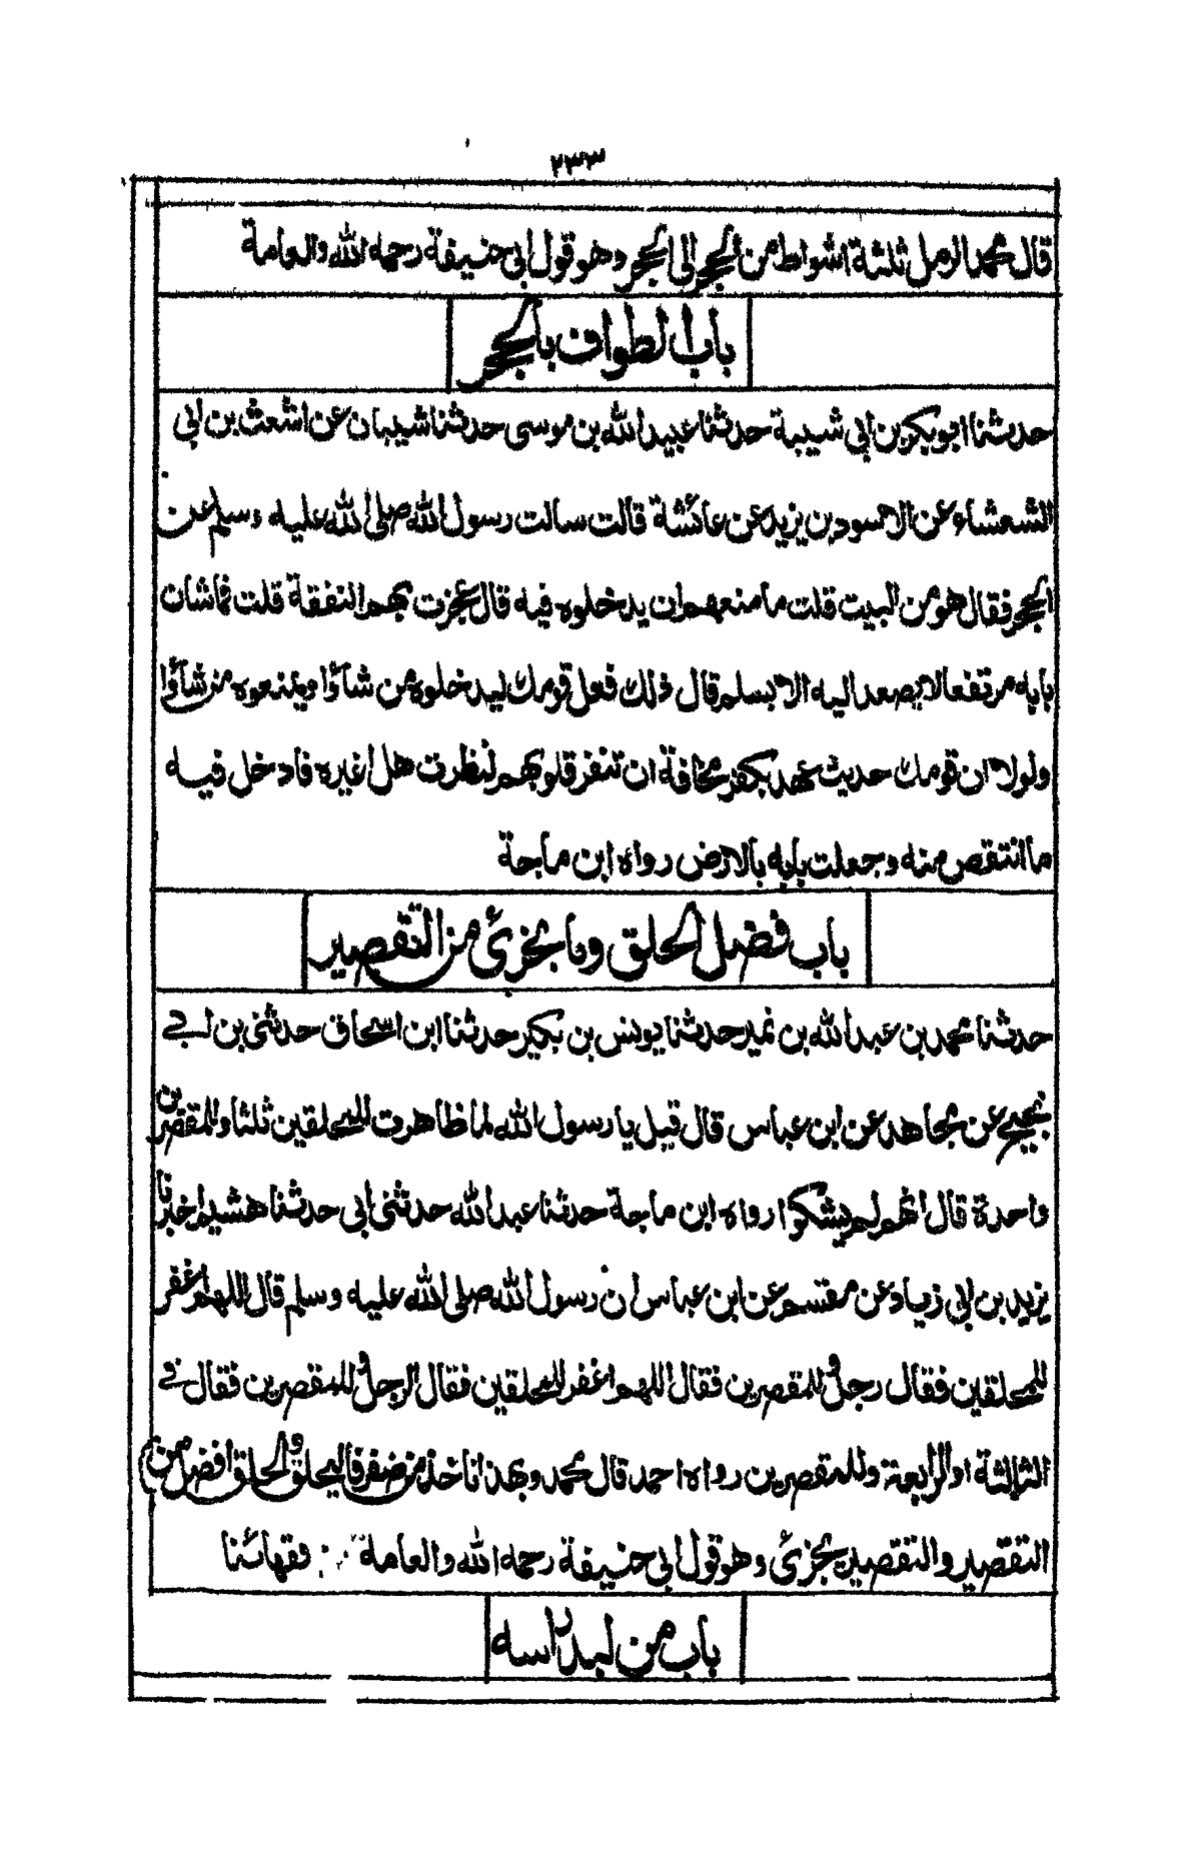 ٢٣٣
قال محمد الرمل ثلثة اشواط من الحجر الى الحجر وهو قول ابي حنيفة رحمه الله والعامة
باب الطواف بالحجر
حدثنا ابو بكر بن ابي شيبة حدثنا عبيد الله بن موسى حدثنا شيبان عن اشعث بن ابي
الشعشاء عن الاسود بن يزيد عن عائشة قالت سالت رسول الله صلى الله عليه وسلم عن
الحجر فقال هو من البيت قلت ما منعهم ان يدخلوه فيه قال عجزت بهم النفقة قلت فما شان
بابه مرتفعا لا يصعد اليه الا بسلم قال ذلك فعل قومك ليدخلوه من شاؤا ويمنعوه من شاؤا
ولولا ان قومك حديث عهد بكفر مخافة ان تنفر قلوبهم لنظرت هل اغيره فادخل فيه
ما انتقص منه وجعلت بابه بالارض رواه ابن ماجة
باب فضل الحلق وما يجزئ من التقصير
حدثنا محمد بن عبد الله بن نمير حدثنا يونس بن بكير حدثنا ابن اسحاق حدثنى بن ابي
نجيح عن مجاهد عن ابن عباس قال قيل يا رسول الله لما ظاهرت للمحلقين ثلثا وللمقصرين
واحدة قال انهم لم يشكوا رواه ابن ماجة حدثنا عبد الله حدثنى ابي حدثنا هشيم اخبرنا
يزيد بن ابي زياد عن مقسم عن ابن عباس ان رسول الله صلى الله عليه وسلم قال اللهم اغفر
للمحلقين فقال رجل وللمقصرين فقال اللهم اغفر للمحلقين فقال الرجل وللمقصرين فقال في
الثالثة او الرابعة وللمقصرين رواه احمد قال محمد وبهذا ناخذ من ضفر فاليحلق والحلق افضل من
التقصير والتقصير يجزئ وهو قول ابي حنيفة رحمه الله والعامة من فقهائنا
باب من لبد راسه